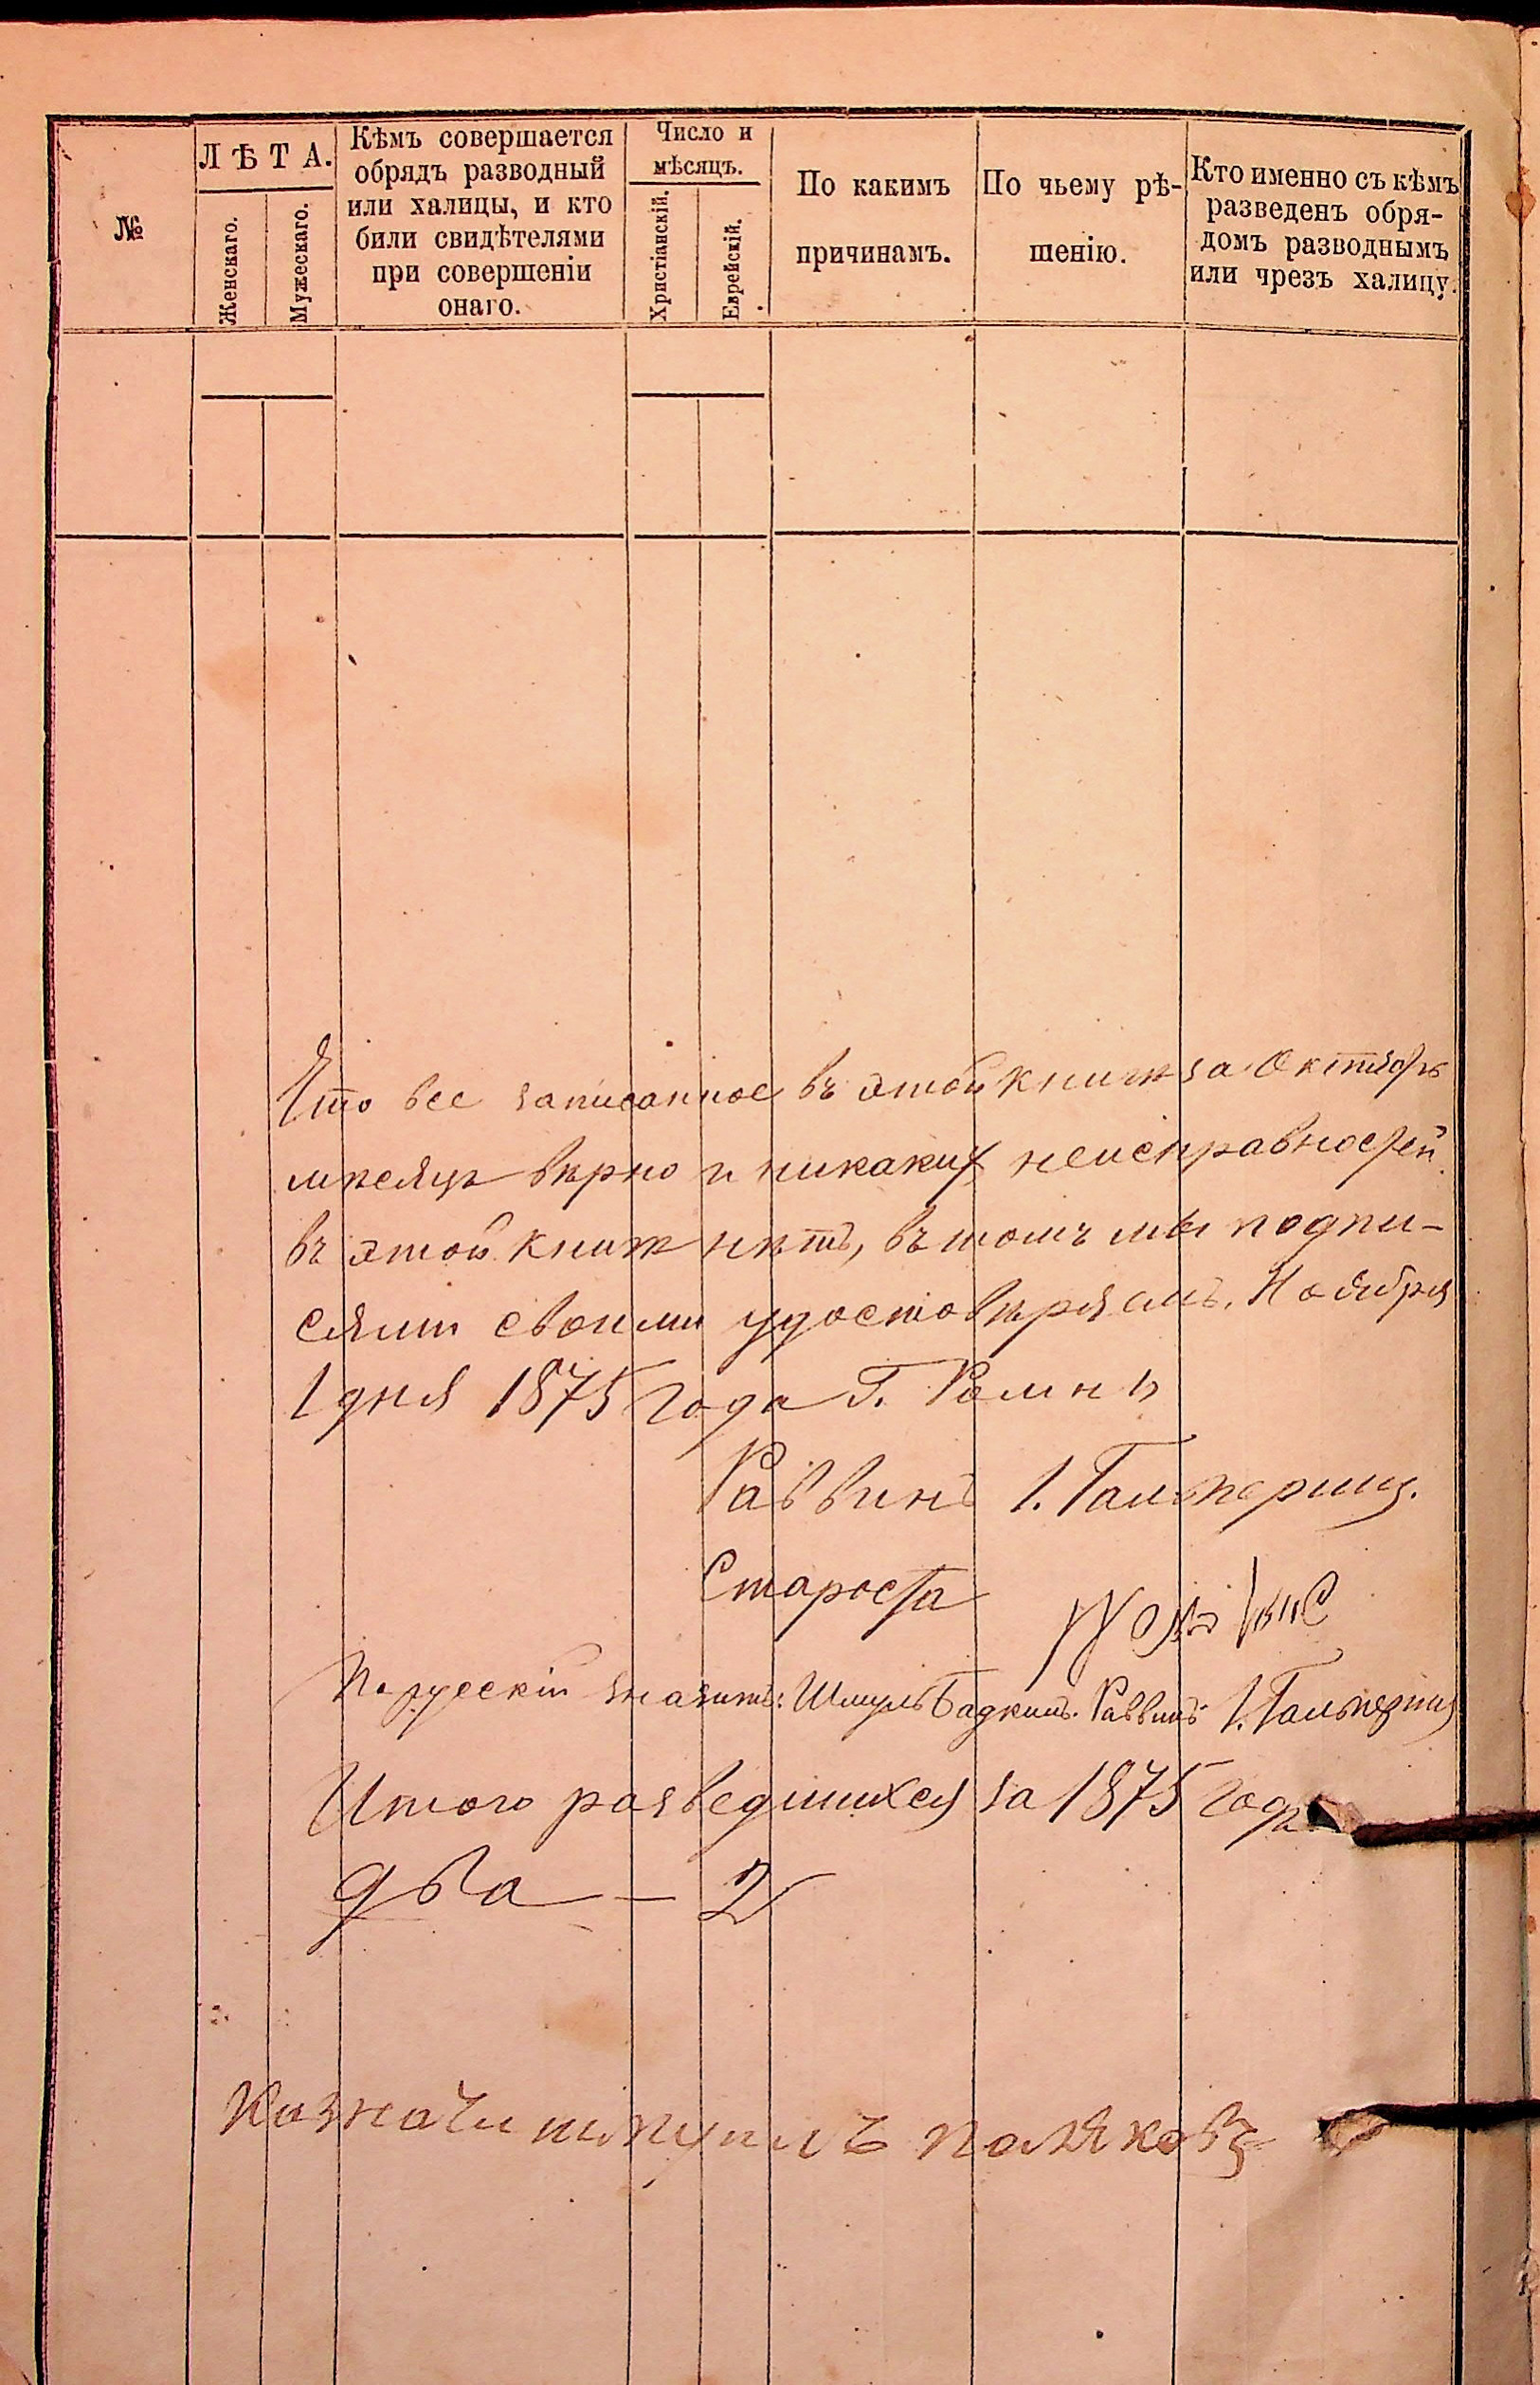 №
ЛѢТА.
Женскаго.
Мужескаго.
Кѣмъ совершается
обрядъ разводный
или халицы, и кто
били свидѣтелями
при совершеніи
онаго.
Число и
мѣсяцъ.
Христіанскій.
Еврейскій.
По какимъ
причинамъ.
По чьему рѣ-
шенію.
Кто именно съ кѣмъ
разведенъ обря-
домъ разводнымъ
или чрезъ халицу.
Что все записанное въ этой книгѣ за Октябрь
мѣсяцъ вѣрно и никаких неисправностей
въ этой книгѣ нѣтъ, въ томъ мы подпи-
сями своими удостовѣряемъ. Ноября
1 дня 1875 года Г. Ромнъ
Раввинъ I. Гальперинъ.
Староста
По русскій значитъ: Шмуль Бадкинъ. Раввинъ I. Гальперинъ
Итого разведшихся за 1875 годъ
два — 2
Казначи поляковъ